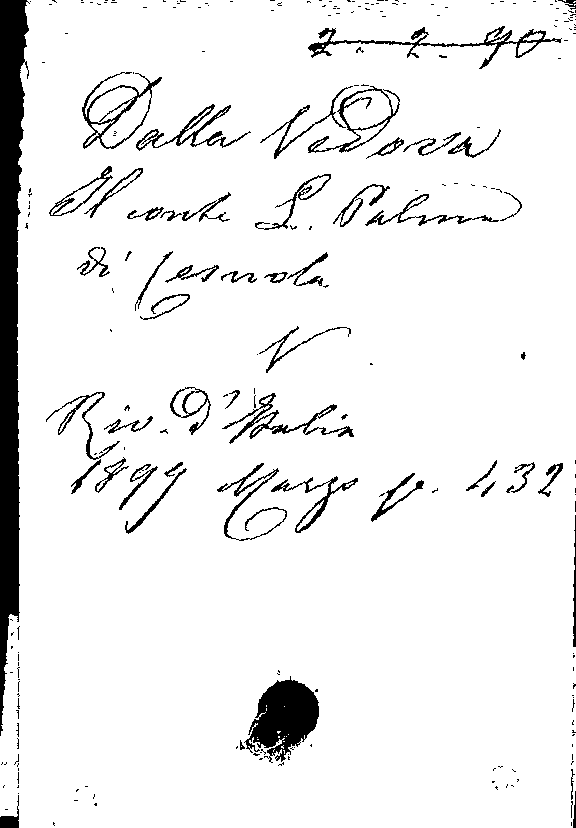 2. 2. 90
Dalla Vedova
Il conte L. Palma
di Cesnola
V
Riv. d'Italia
1899 Marzo p. 432